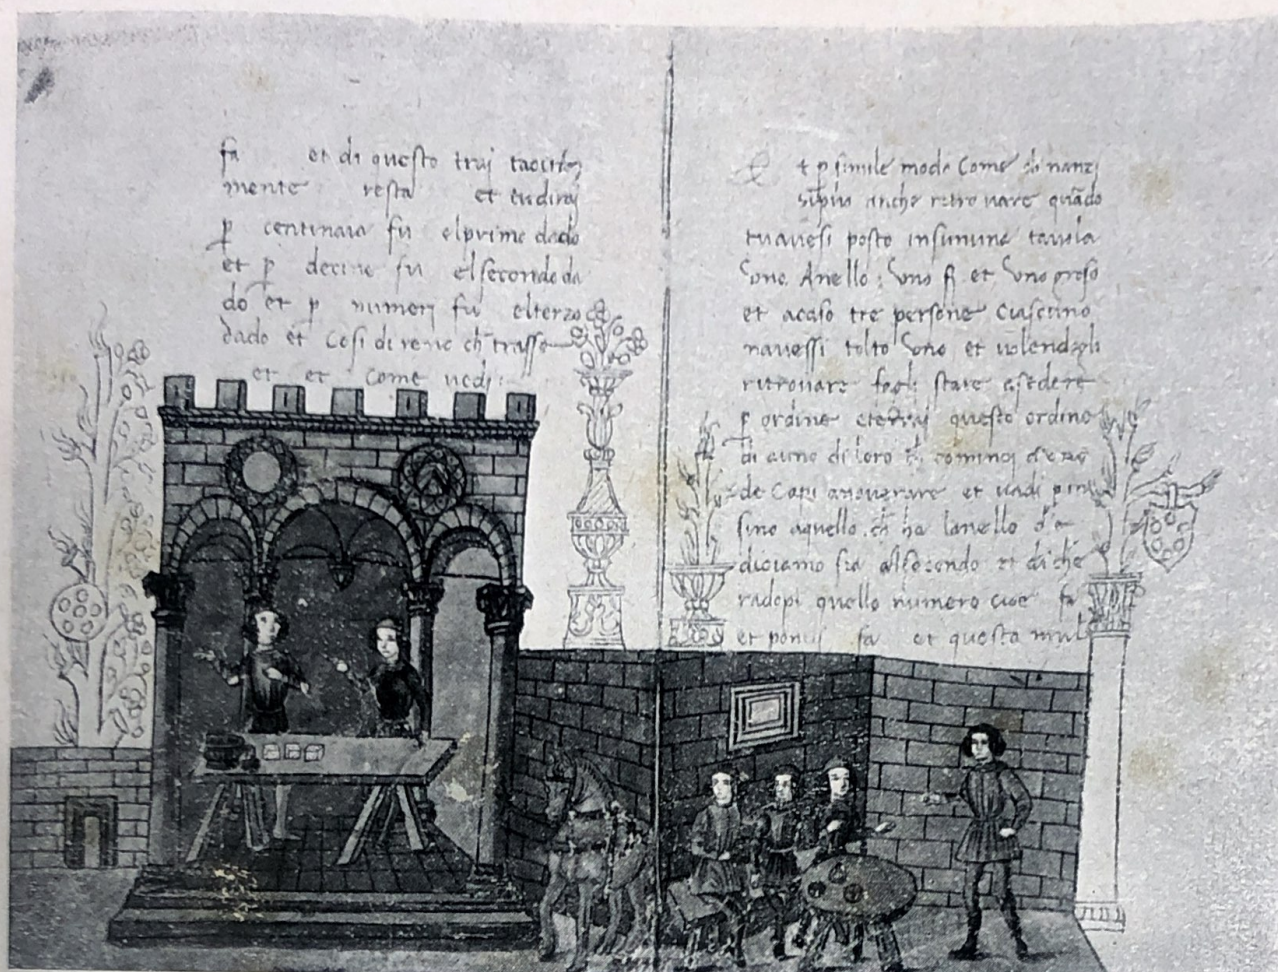 fa et di questo trai
mente resta et
ꝑ centinaia fu el primo dado
et ꝑ decine fu el secondo da
do et ꝑ numerj fu el terzo
dado et cosi di rene ch̄ trasse
et et come uedi :
t ꝑ simile modo Come di nanzi
anche retrouare quādo
tu auessi posto insununa tauola
Vono Anello : Vno et Vno groso
et acaso tre persone Ciascuno
nauessi tolto Vono et uolendogli
ritrouare fagli stare asedere
ꝑ ordine questo ordine
di auno di loro ch̄ cominci
de Capi anouerare et uadi
sino aquello ch̄ ha lanello
diciamo sia alsecondo et di che
radopi quello numero cioe fa
et ponuj fa et questa mul